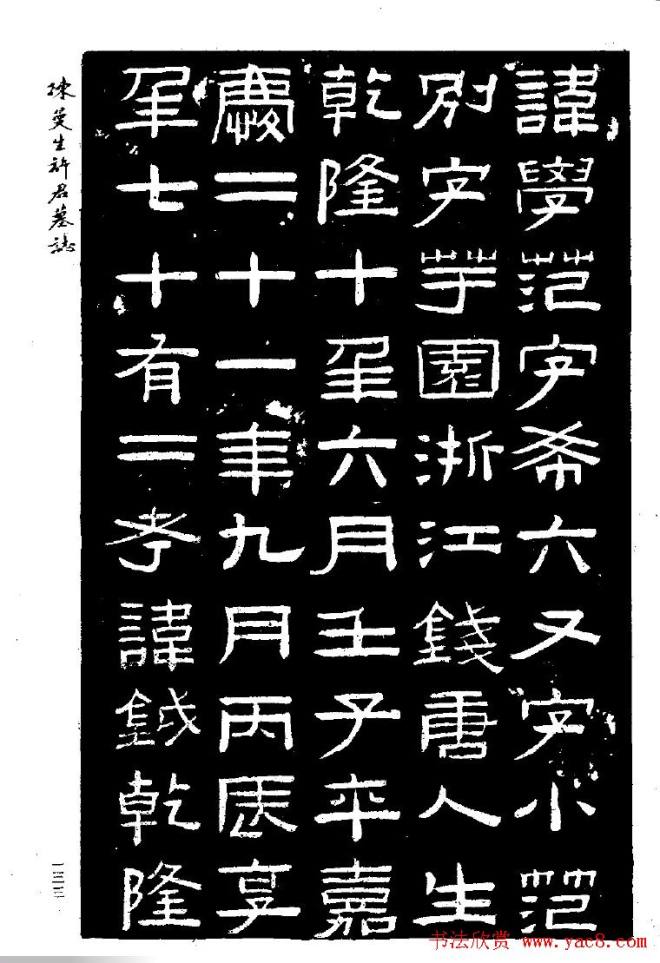 諱學范字希六又字小范
別字芋園浙江錢唐人生
乾隆十年六月壬子卒嘉
慶二十一年九月丙辰享
年七十有二考諱鉞乾隆
陳曼生許君墓誌
书法欣赏 www.yac8.com